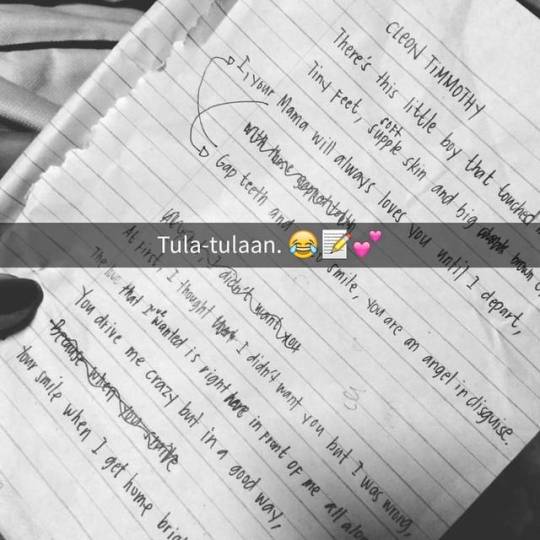 CLEON TIMMOTHY
There's this little boy that touched
Tiny Feet, supple soft skin and big brown
I, your Mama will always loves you until I depart,
Gap teeth and smile, you are an angel in disguise.
Tula-tulaan. 😂📝💕
I didn't want you
At First, I thought I didn't want you but I was wrong,
The love that I've wanted is right here in front of me all
You drive me crazy but in a good way,
Because when you smile
Your smile when I get home